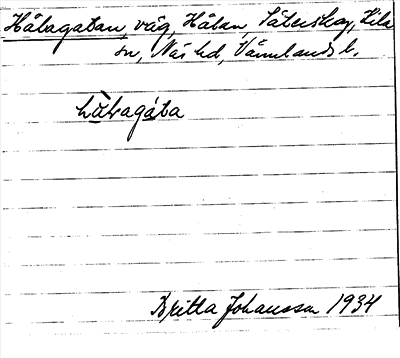 Hålagatan, väg, Hålan, Säterskog, Kila
sn, Näs hd, Värmlands l.
Britta Johansson 1934